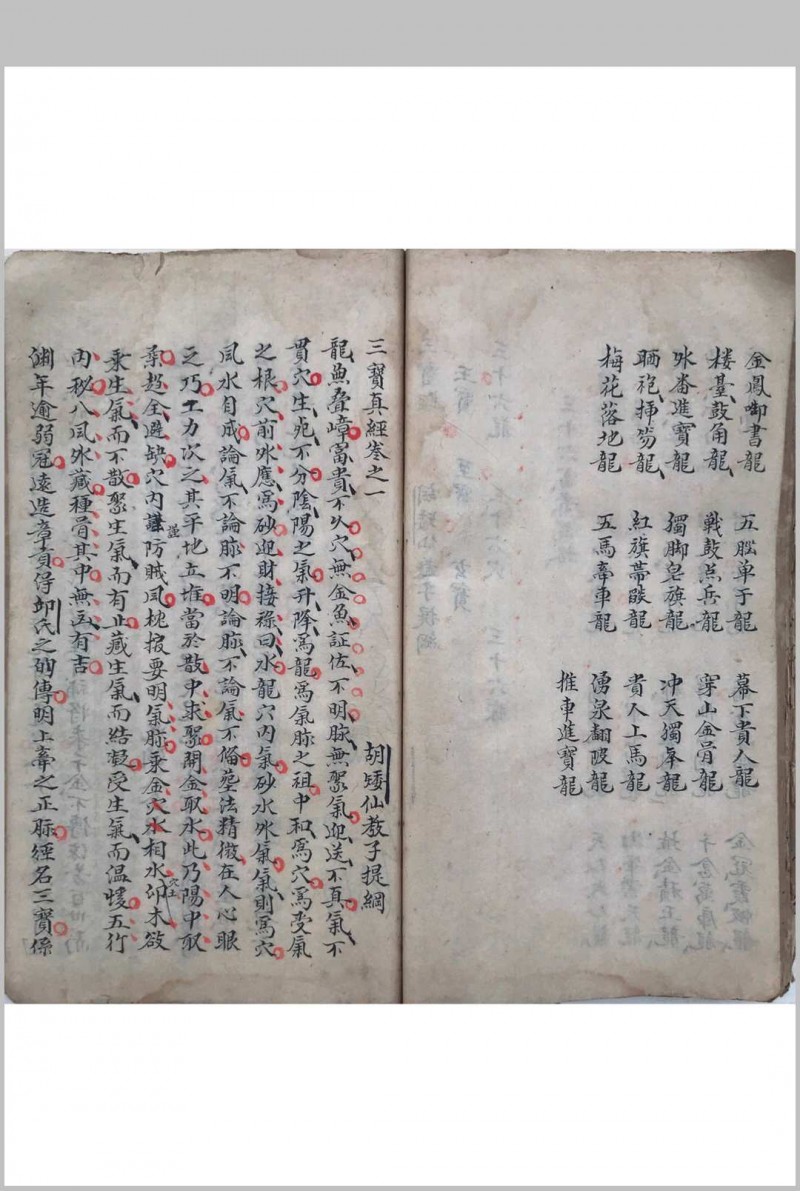 金鳳啣書龍 五腦单于龍 幕下貴人龍
楼臺鼓角龍 戰鼓点兵龍 穿山金骨龍
氷畨進寶龍 獨脚皂旗龍 冲天獨阜龍
晒袍掛笏龍 紅旗帶皷龍 貴人上馬龍
梅花落地龍 五馬辇車龍 湧泉翻波龍
推車進寶龍
三寳真經卷之一
胡矮仙教子提綱
龍魚叠嶂富貴不久穴無金魚証佐不明脉無聚氣迎送不真氣不
貫穴生炁不分陰陽之氣升降為龍為氣脉之祖中和為穴為受氣
之根穴前氷應為砂迎財接祿曰水龍穴内氣砂水氷氣氣則為穴
風水自成論氣不論脉不明論脉不論氣不偹塟法精微在人心眼
之巧工力次之其平地立堆當於散中求聚開金取水此乃陽中取
乘趋全避缺穴内謹防賊风枕按要明氣脉乘金穴水相水印木
謹
穴土
乘生氣而不散聚生氣而有止藏生氣而結穀受生氣而温暖五行
内秘八风氷藏種骨其中無凶有吉
渊年逾弱冠遠造章貢得邱氏之的傳明上辇之正脉經名三寳係